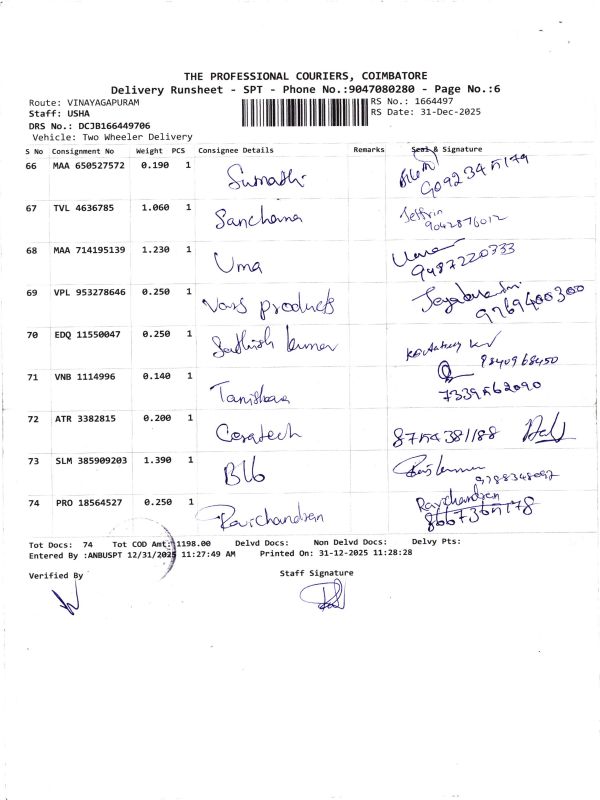 THE PROFESSIONAL COURIERS, COIMBATORE
Delivery Runsheet - SPT - Phone No.:9047080280 - Page No.:6
Route: VINAYAGAPURAM RS No.: 1664497
Staff: USHA RS Date: 31-Dec-2025
DRS No.: DCJB166449706
Vehicle: Two Wheeler Delivery
S No Consignment No Weight PCS Consignee Details Remarks Seal & Signature
66 MAA 650527572 0.190 1 Sumathi
67 TVL 4636785 1.060 1 Sanchana Jeffrin
9042876012
68 MAA 714195139 1.230 1 Uma Uma
9487220333
69 VPL 953278646 0.250 1 Vars products
9769400300
70 EDQ 11550047 0.250 1 Sathish kumar
9840968450
71 VNB 1114996 0.140 1
72 ATR 3382815 0.200 1 Ceratech
73 SLM 385909203 1.390 1
74 PRO 18564527 0.250 1 Ravichandran Ravichandran
Tot Docs: 74 Tot COD Amt: 1198.00 Delvd Docs: Non Delvd Docs: Delvy Pts:
Entered By :ANBUSPT 12/31/2025 11:27:49 AM Printed On: 31-12-2025 11:28:28
Verified By Staff Signature